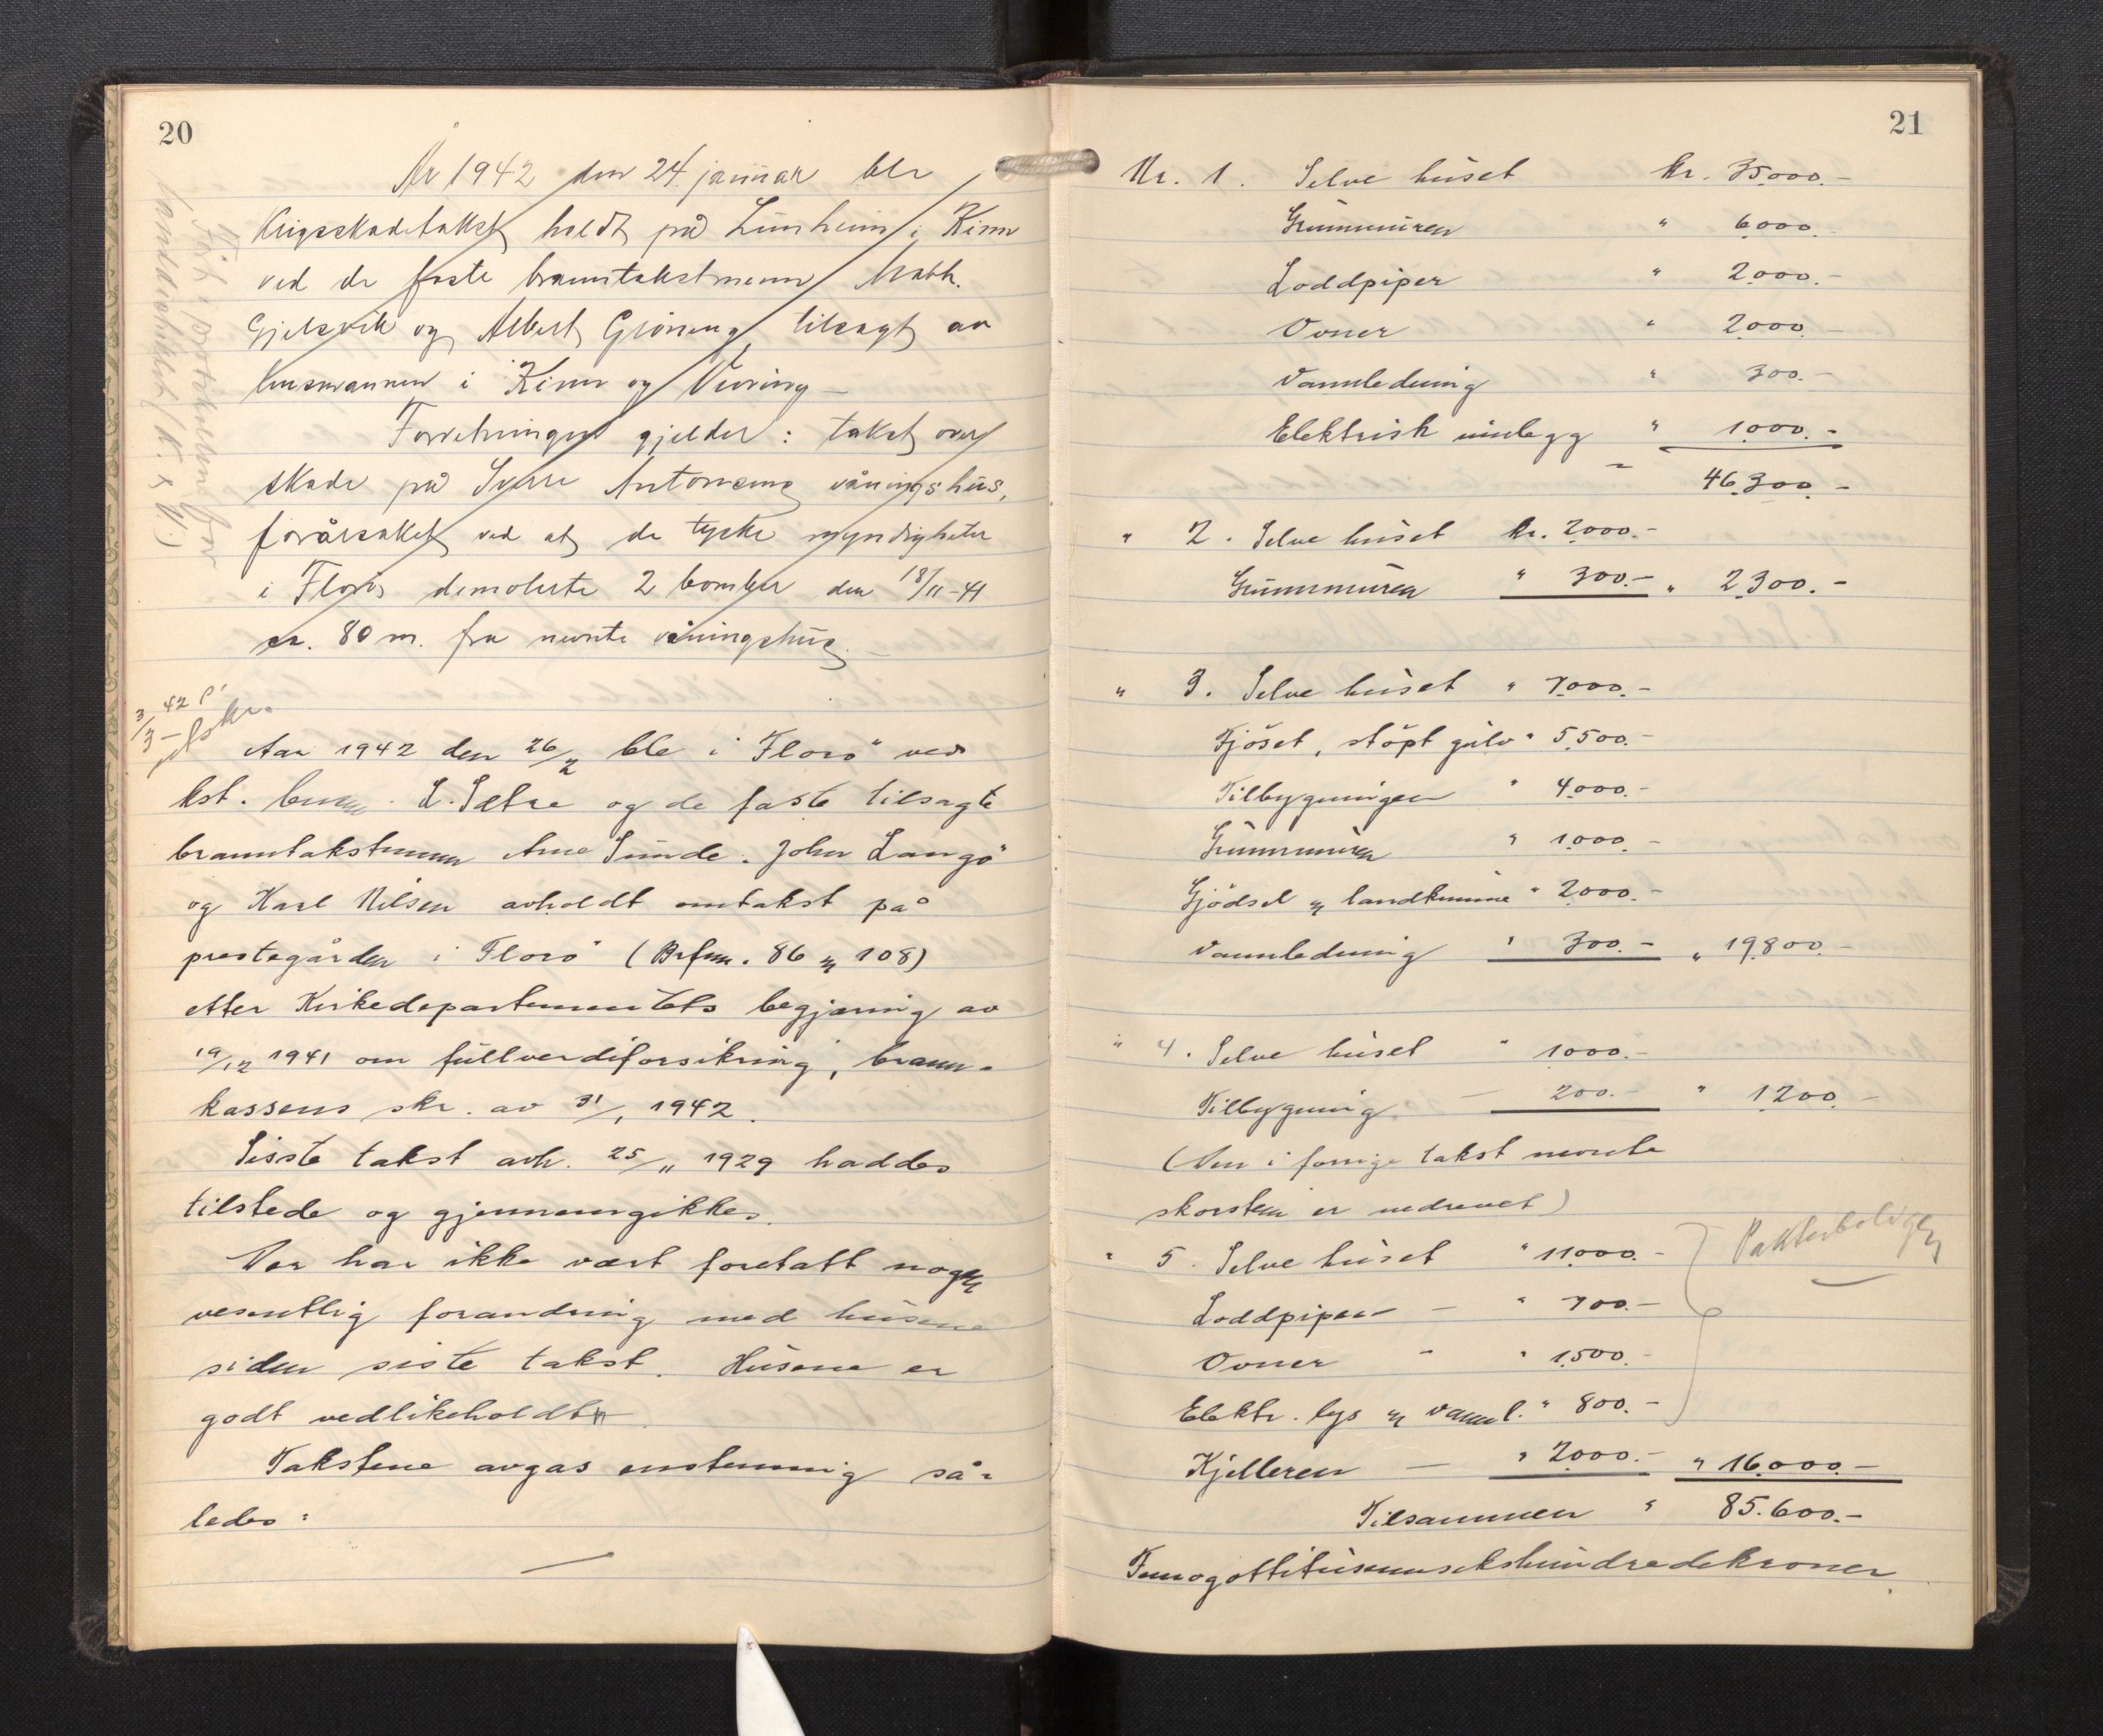 20
År 1942 den 24. januar ble
krigsskadetakst holdt på Lunheim i Kinn
ved de faste branntakstmenn Math.
Gjelsvik og Albert Grøneng, tilsagt av
lensmannen i Kinn og Vevring –
Forretningen gjelder: takst over
skade på Sverre Antonsens våningshus,
forårsaket ved at de tyske myndigheter
i Florø demolerte 2 bomber den 18/11-41
ca. 80 m. fra nevnte våningshus. –
Ført i protokollen for
landdistriktet (K. & V.)
3/3-42
utskr.
Aar 1942 den 26/2 ble i Florö ved
kst. L. Sætre og de faste tilsagte
branntakstmenn Arne Sunde. John Langö
og Karl Nilsen avholdt omtakst på
prestegården i Florö (Brfnr. 86 & 108)
etter Kirkedepartementets begjæring av
19/12 1941 om fullverdiforsikring, brann-
kassens skr. av 31/1 1942.
Siste takst avh. 25/11 1929 haddes
tilstede og gjennemgikkes.
Der har ikke vært foretatt nogen
vesentlig forandring med husene
siden siste takst. Husene er
godt vedlikeholdt.
Takstene avgas enstemmig så-
ledes:
21
Nr. 1. Selve huset kr. 35000.-
Grunnmuren " 6000.-
Loddpiper " 2000.-
Ovner " 2000.-
Vannledning " 300.-
Elektrisk innlegg " 1000.-
46.300.-
" 2. Selve huset kr. 2000.-
Grunnmuren " 300.- " 2.300.-
" 3. Selve huset " 7000.-
Fjöset, stöpt gulv " 5.500.-
Tilbygningen " 4000.-
Grunnmuren " 1000.-
Gjödsel & landkumme " 2000.-
Vannledning " 300.- " 19.800.-
" 4. Selve huset " 1000.-
Tilbygning – 200.- " 1200.-
(Den i forrige takst nevnte
skorstein er nedrevet)
" 5. Selve huset " 11000.-
Pakterboligen
Loddpiper – " 700.-
Ovner " " 1500.-
Elektr. lys & vannl. " 800.-
Kjelleren – " 2000.- " 16.000.-
Tilsammen " 85.600.-
Femogottitusensekshundredekroner.